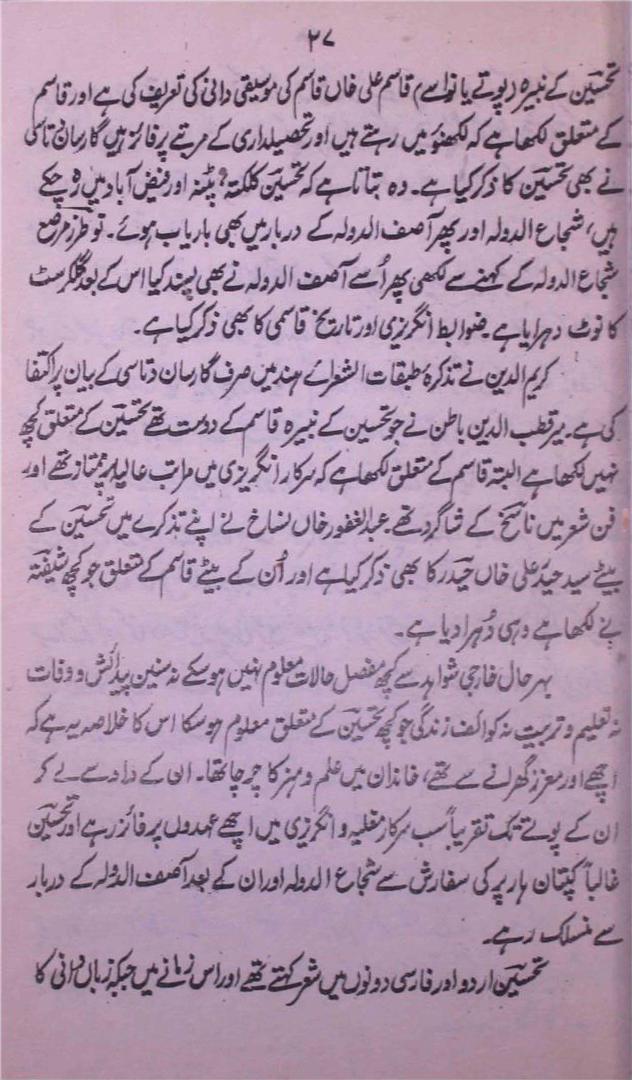 ۲۷
تحسینؔ کے نبیرہ (پوتے یا نواسے) قاسم علی خاں قاسم کی موسیقی دانی کی تعریف کی ہے اور قاسم
کے متعلق لکھا ہے کہ لکھنؤ میں رہتے ہیں اور تحصیلداری کے مرتبے پر فائز ہیں گارساں دتاسی
نے بھی تحسینؔ کا ذکر کیا ہے۔ وہ بتاتا ہے کہ تحسینؔ کلکتہ، پٹنہ اور فیض آباد میں رہ چکے
ہیں، شجاع الدولہ اور پھر آصف الدولہ کے دربار میں بھی باریاب ہوئے۔ نو طرز مرصع
شجاع الدولہ کے کہنے سے لکھی پھر اُسے آصف الدولہ نے بھی پسند کیا اس کے بعد گلکرسٹ
کا نوٹ دہرایا ہے۔ ضوابط انگریزی اور تاریخ قاسمی کا بھی ذکر کیا ہے۔
کریم الدین نے تذکرۂ طبقات الشعرائے ہند میں صرف گارساں دتاسی کے بیان پر اکتفا
کی ہے۔ میر قطب الدین باطن نے جو تحسین کے نبیرہ قاسم کے دوست تھے تحسینؔ کے متعلق کچھ
نہیں لکھا ہے البتہ قاسم کے متعلق لکھا ہے کہ سرکار انگریزی میں مراتب عالیہ پر ممتاز تھے اور
فن شعر میں ناسخؔ کے شاگرد تھے۔ عبدالغفور خاں نساخ نے اپنے تذکرے میں تحسینؔ کے
بیٹے سید حیدر علی خاں حیدرؔ کا بھی ذکر کیا ہے اور اُن کے بیٹے قاسم کے متعلق جو کچھ شیفتہؔ
نے لکھا ہے وہی دُہرا دیا ہے۔
بہر حال خارجی شواہد سے کچھ مفصل حالات معلوم نہیں ہو سکے نہ سنین پیدائش و وفات
نہ تعلیم و تربیت نہ کوائف زندگی جو کچھ تحسینؔ کے متعلق معلوم ہو سکا اس کا خلاصہ یہ ہے کہ
اچھے اور معزز گھرانے سے تھے، خاندان میں علم و ہنر کا چرچا تھا۔ ان کے دادا سے لے کر
ان کے پوتے تک تقریباً سب سرکار مغلیہ و انگریزی میں اچھے عہدوں پر فائز رہے اور تحسینؔ
غالباً کپتان ہارپر کی سفارش سے شجاع الدولہ اور ان کے بعد آصف الدولہ کے دربار
سے منسلک رہے۔
تحسینؔ اردو اور فارسی دونوں میں شعر کہتے تھے اور اس زمانے میں جبکہ زباں دانی کا